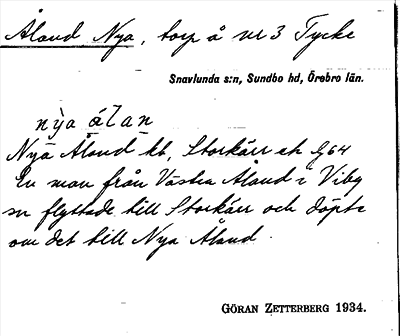 Åland Nya, torp å nr 3 Tycke
Snavlunda s:n, Sundbo hd, Örebro län.
nỳa álan
Nya Åland kb, Storkärr ek G64
En man från Västra Åland i Viby
sn flyttade till Storkärr och döpte
om det till Nya Åland.
GÖRAN ZETTERBERG 1934.